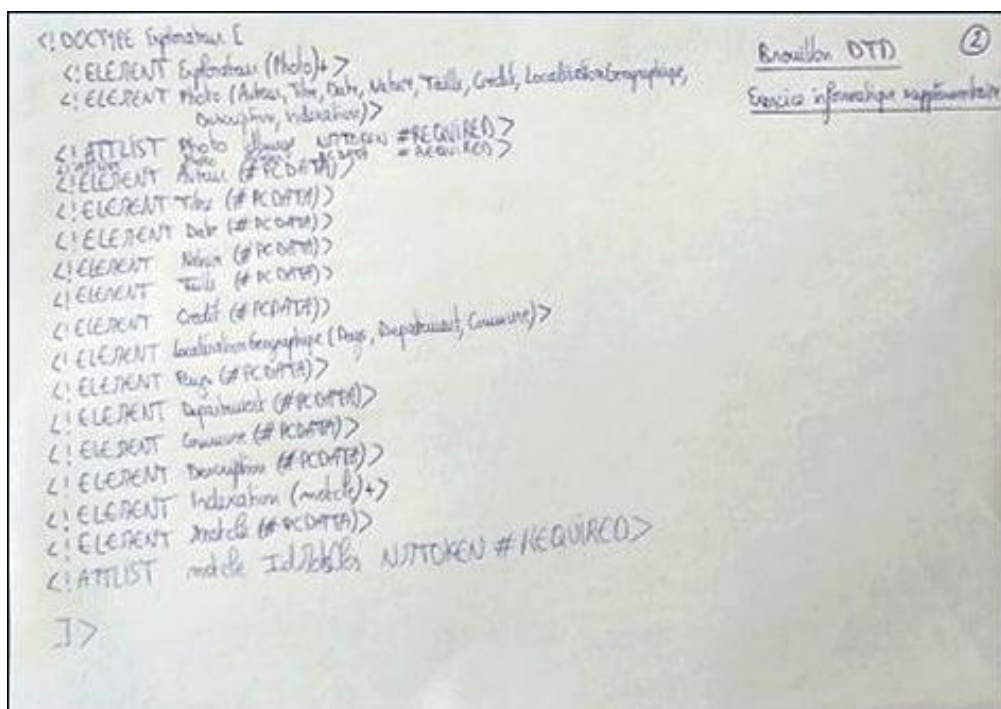 Brouillon DTD
2
Exercice informatique supplémentaire
<!DOCTYPE Explorateur [
<!ELEMENT Explorateur (Photo)+>
<!ELEMENT Photo (Auteur, Titre, Date, Nature, Taille, Credit, LocalisationGeographique,
Description, Indexation)>
<!ATTLIST Photo NMTOKEN #REQUIRED>
Photo #REQUIRED>
<!ELEMENT Auteur (#PCDATA)>
<!ELEMENT Titre (#PCDATA)>
<!ELEMENT Date (#PCDATA)>
<!ELEMENT Nature (#PCDATA)>
<!ELEMENT Taille (#PCDATA)>
<!ELEMENT Credit (#PCDATA)>
<!ELEMENT LocalisationGeographique (Pays, Departement, Commune)>
<!ELEMENT Pays (#PCDATA)>
<!ELEMENT Departement (#PCDATA)>
<!ELEMENT Commune (#PCDATA)>
<!ELEMENT Description (#PCDATA)>
<!ELEMENT Indexation (motcle)+>
<!ELEMENT motcle (#PCDATA)>
<!ATTLIST motcle NMTOKEN #REQUIRED>
]>